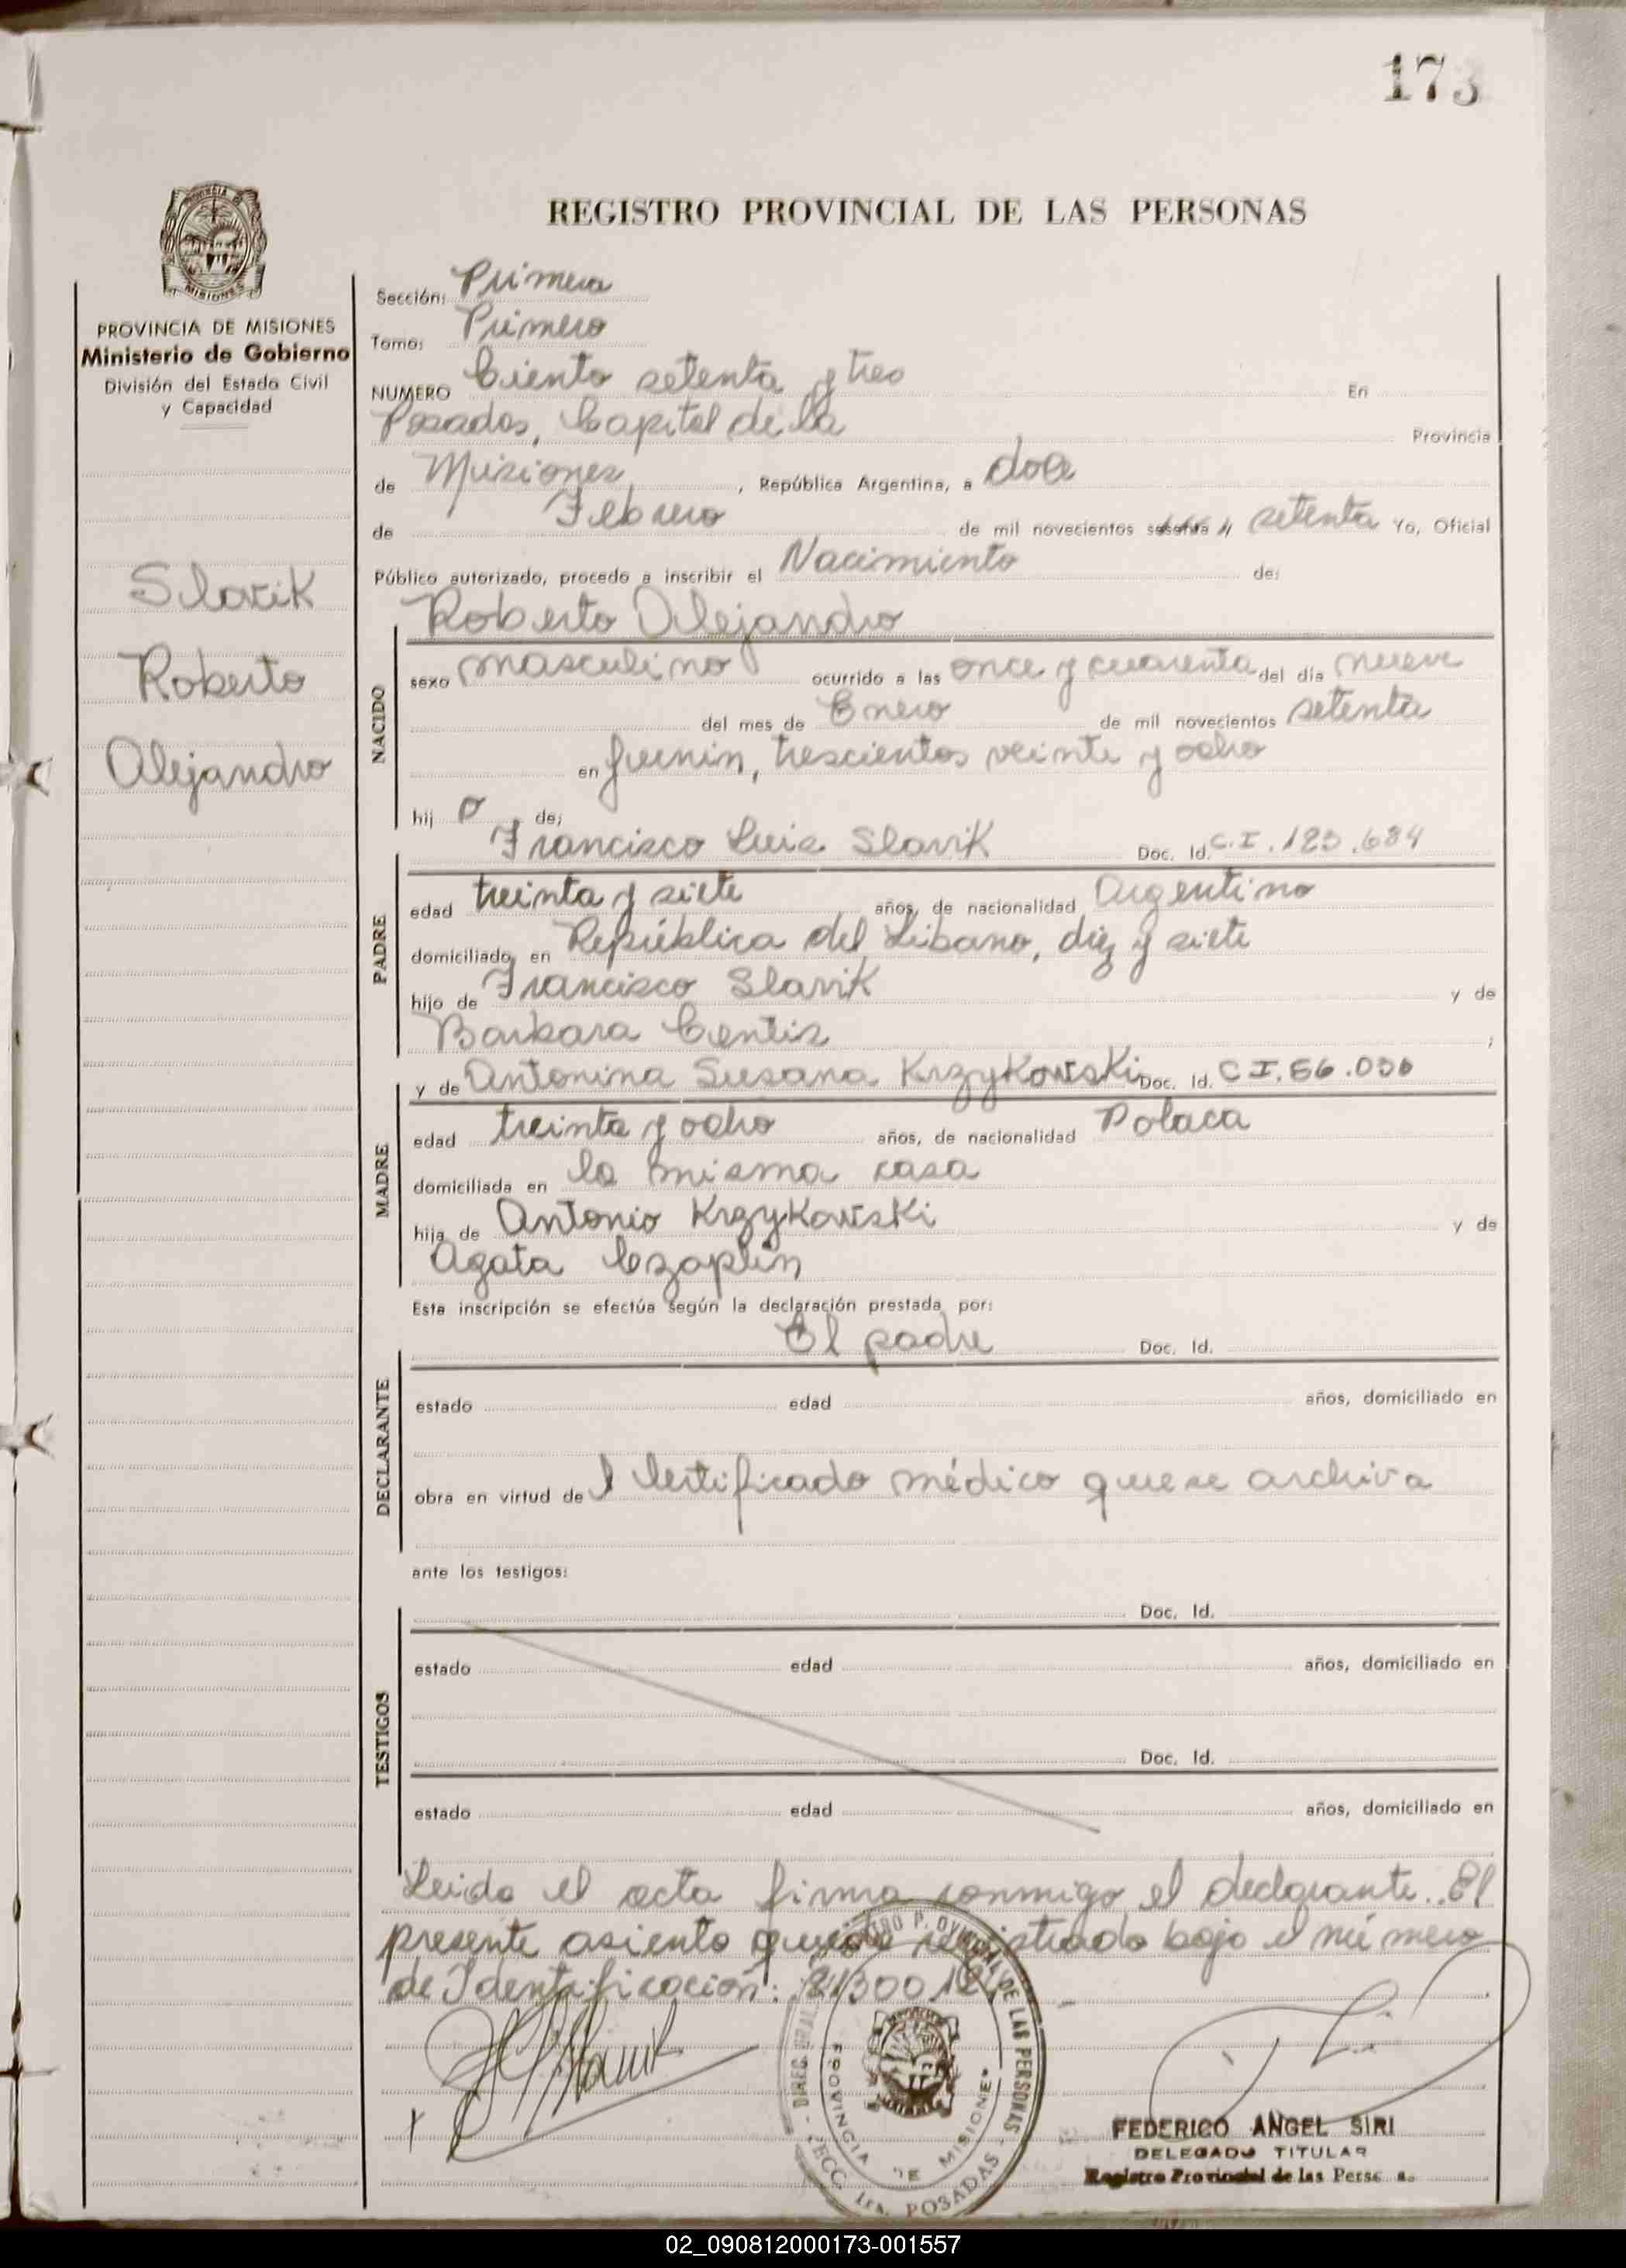 173
REGISTRO PROVINCIAL DE LAS PERSONAS
MISIONES
PROVINCIA DE MISIONES
Ministerio de Gobierno
División del Estado Civil
y Capacidad
Slavik
Roberto
Alejandro
Sección: Primera
Tomo: Primero
NUMERO Ciento setenta y tres En
Posadas, Capital de la Provincia
de Misiones, República Argentina, a doce
de Febrero de mil novecientos sesenta y setenta Yo, Oficial
Público autorizado, procedo a inscribir el Nacimiento de:
NACIDO
Roberto Alejandro
sexo masculino ocurrido a las once y cuarenta del día nueve
del mes de Enero de mil novecientos setenta
en Junin, trescientos veinte y ocho
hij o de:
PADRE
Francisco Luis Slavik Doc. Id. C.I. 123.684
edad treinta y siete años, de nacionalidad Argentino
domiciliado en República del Libano, diez y siete
hijo de Francisco Slavik y de
Barbara Centis ;
MADRE
y de Antonina Susana Krzykowski Doc. Id. C I. 56.030
edad treinta y ocho años, de nacionalidad Polaca
domiciliada en la misma casa
hija de Antonio Krzykowski y de
Agata Czaplin
Esta inscripción se efectúa según la declaración prestada por:
DECLARANTE
El padre Doc. Id.
estado edad años, domiciliado en
obra en virtud de l Certificado médico que se archiva
ante los testigos:
TESTIGOS
Doc. Id.
estado edad años, domiciliado en
Doc. Id.
estado edad años, domiciliado en
Leida el acta firma conmigo el declarante. El
presente asiento queda registrado bajo el número
de Identificación:
PROVINCIA DE MISIONES
POSADAS
FEDERICO ANGEL SIRI
DELEGADO TITULAR
Registro Provincial de las Perso as
02_090812000173-001557